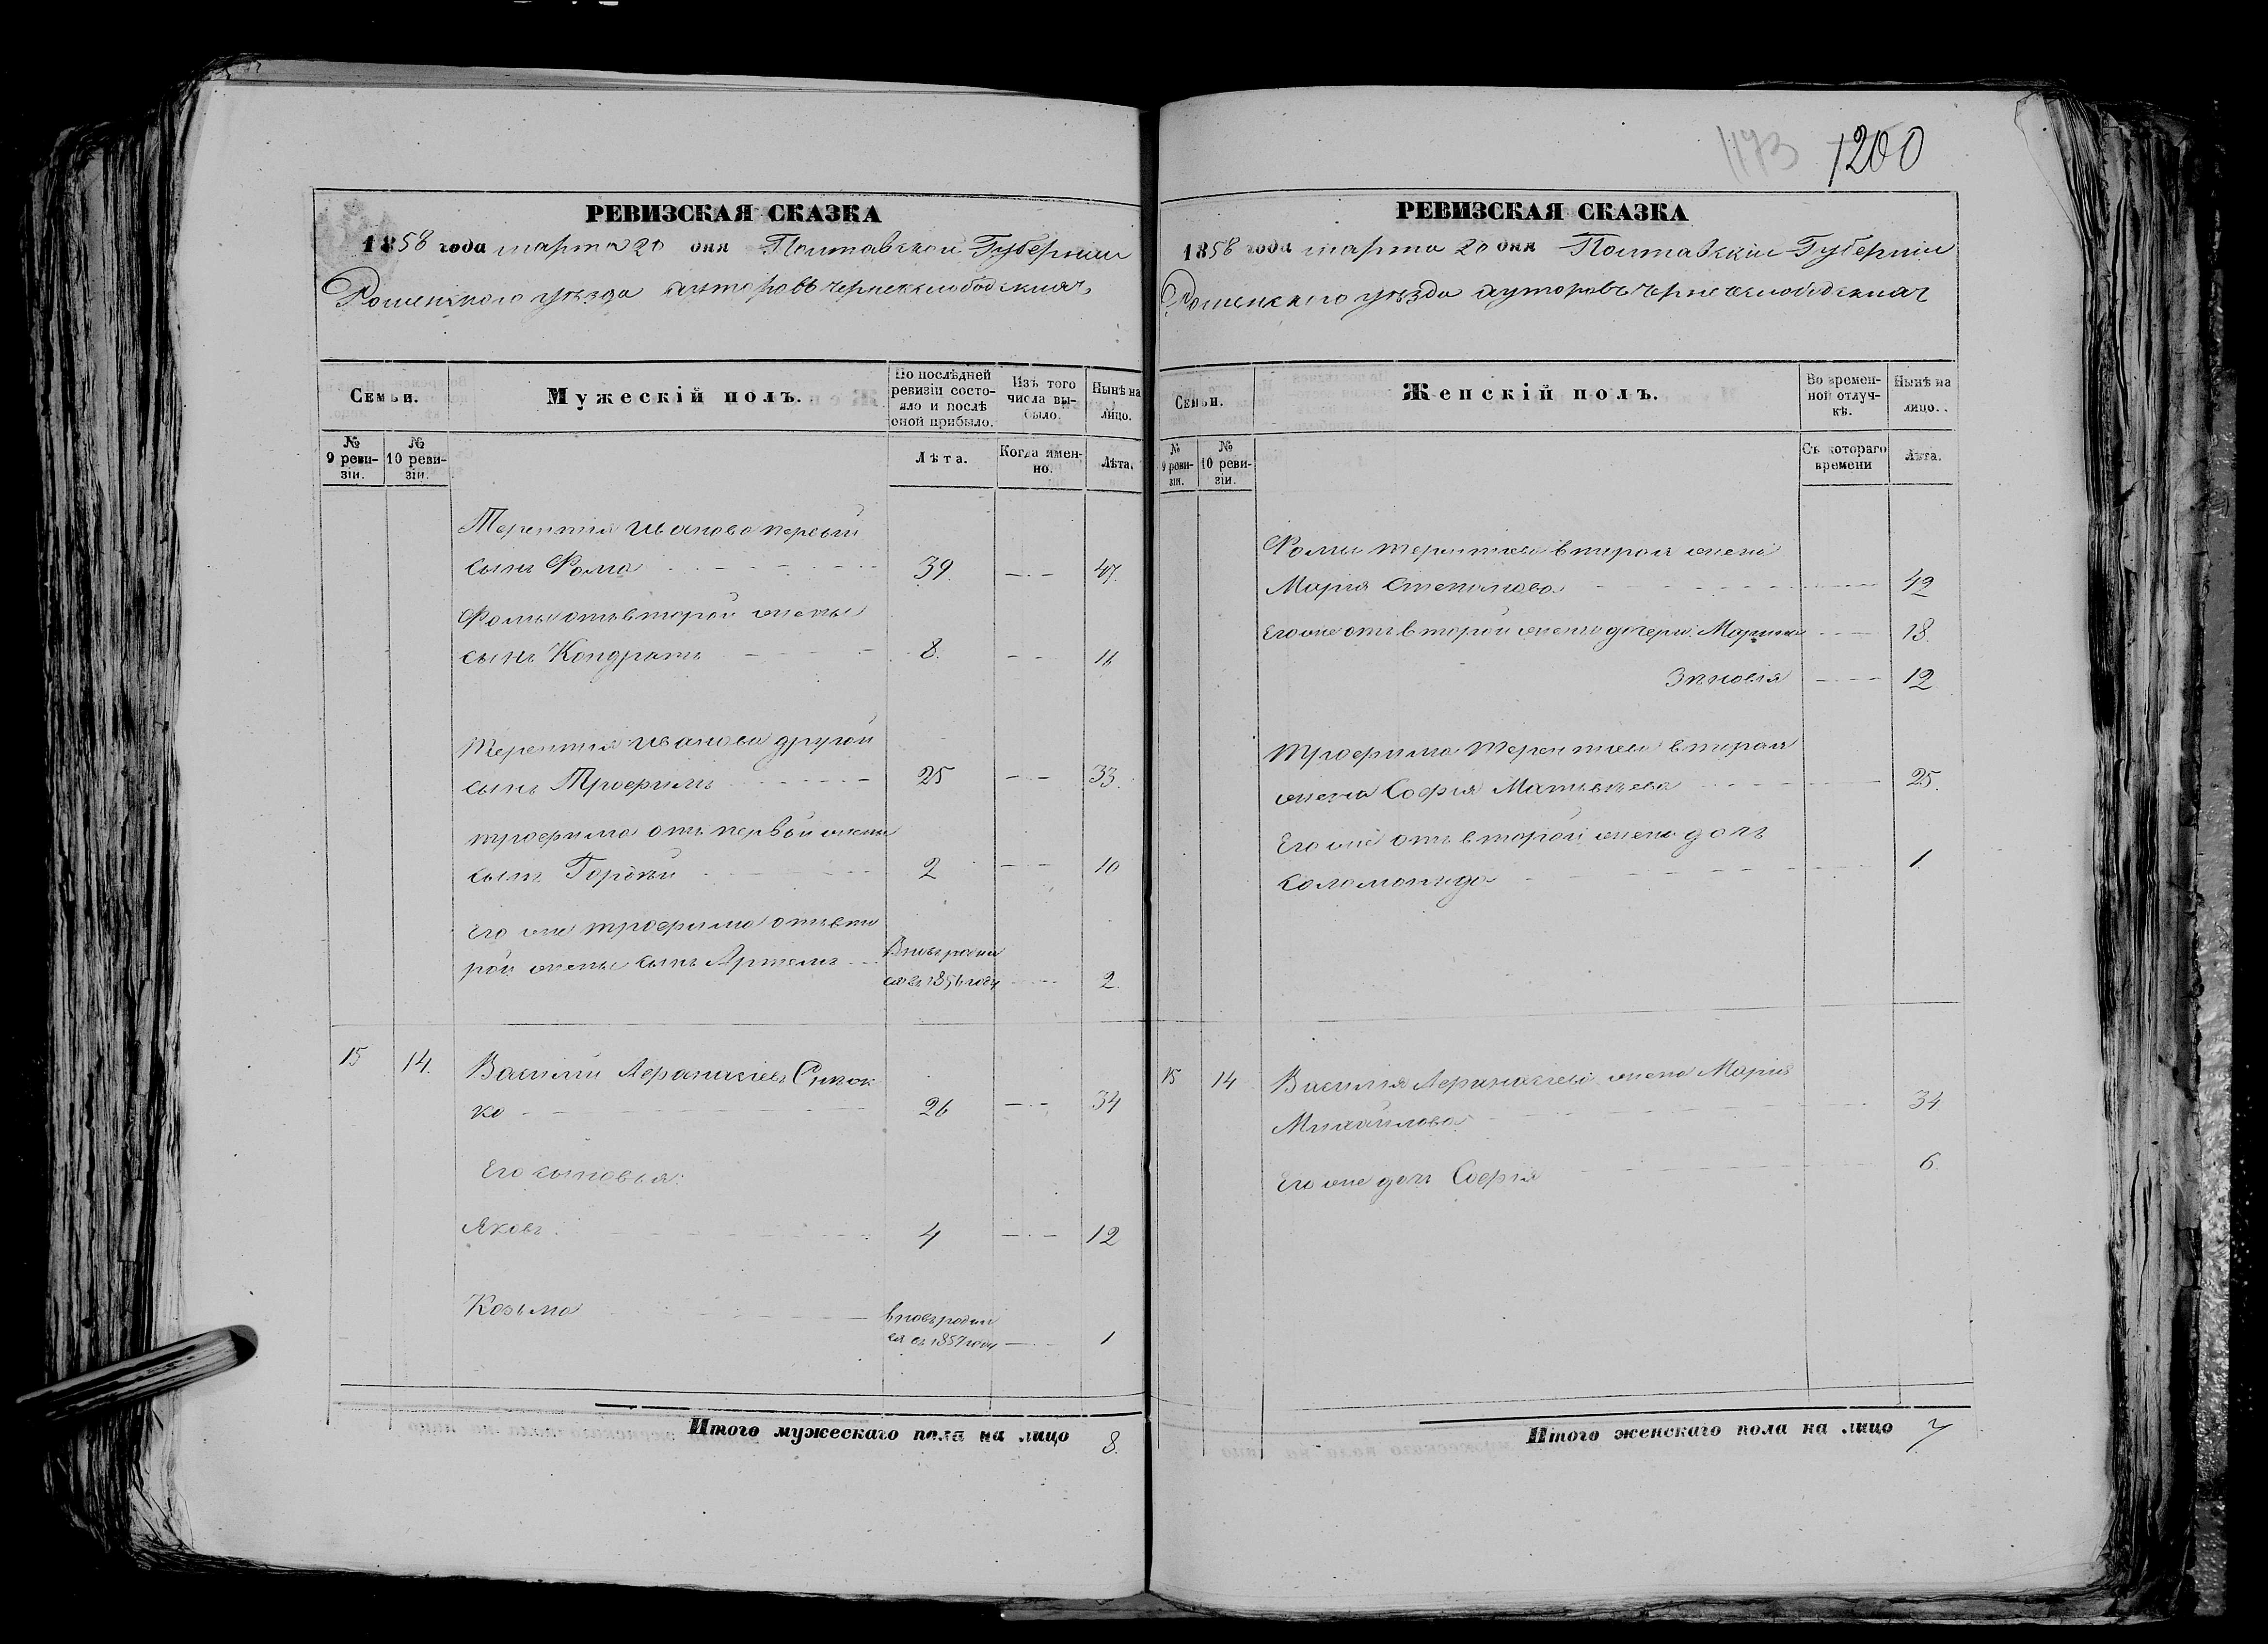 1173 1200
РЕВИЗСКАЯ СКАЗКА
1858 года марта 20 дня Полтавской Губернии
Роменского уѣзда хуторовъ Чернекслободскихъ
Семьи.
Мужескій полъ.
По послѣдней ревизіи состояло и послѣ оной прибыло.
Изъ того числа выбыло.
Нынѣ на лицо.
№ 9 ревизіи.
№ 10 ревизіи.
Лѣта.
Когда именно.
Лѣта.
Терентія Иванова первый
сынъ Фома 39. 47.
Фомы отъ второй жены
сынъ Кондратъ 8. 16
Терентія Иванова другой
сынъ Трофимъ 25 33.
Трофима отъ первой жены
сынъ Гордѣй 2 10
Его же Трофима отъ вто
рой жены сынъ Артемъ
Вновь родил
ся въ 1856 году 2.
15 14. Василий Афанасіевъ
ко 26 34
Его сыновья:
Яковъ 4 12
Козьма
вновь родил
ся въ 1857 году 1
Итого мужескаго пола на лицо 8.
РЕВИЗСКАЯ СКАЗКА
1858 года марта 20 дня Полтавскіи Губерніи
Роменскаго уѣзда хуторовъ
Семьи.
Женскій полъ.
Во временной отлучкѣ.
Нынѣ на лицо.
№ 9 ревизіи.
№ 10 ревизіи.
Съ котораго времени
Лѣта.
Фомы Терентіева вторая жена
Марія Степанова 42
Его же отъ второй жены дочери: Марина 18.
Зѣновія 12
Трофима Терентіева вторая
жена Софія Матвѣева 25.
Его же отъ второй жены дочь
Соломонида 1
15 14 Василія Афанасіева жена Марія
Михайлова 34
Его же дочь Софія 6.
Итого женскаго пола на лицо 7